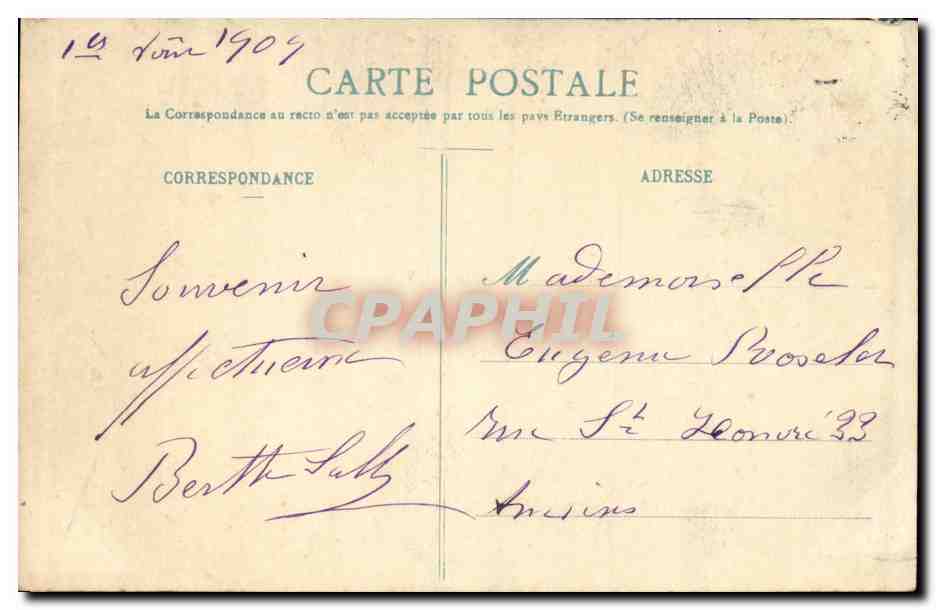 1er Août 1909
CARTE POSTALE
La Correspondance au recto n'est pas acceptée par tous les pays Étrangers. (Se renseigner à la Poste).
CORRESPONDANCE
ADRESSE
Souvenir
affectueux
Berthe
Mademoiselle
Eugenie
rue St Honoré 33
Amiens
CPAPHIL